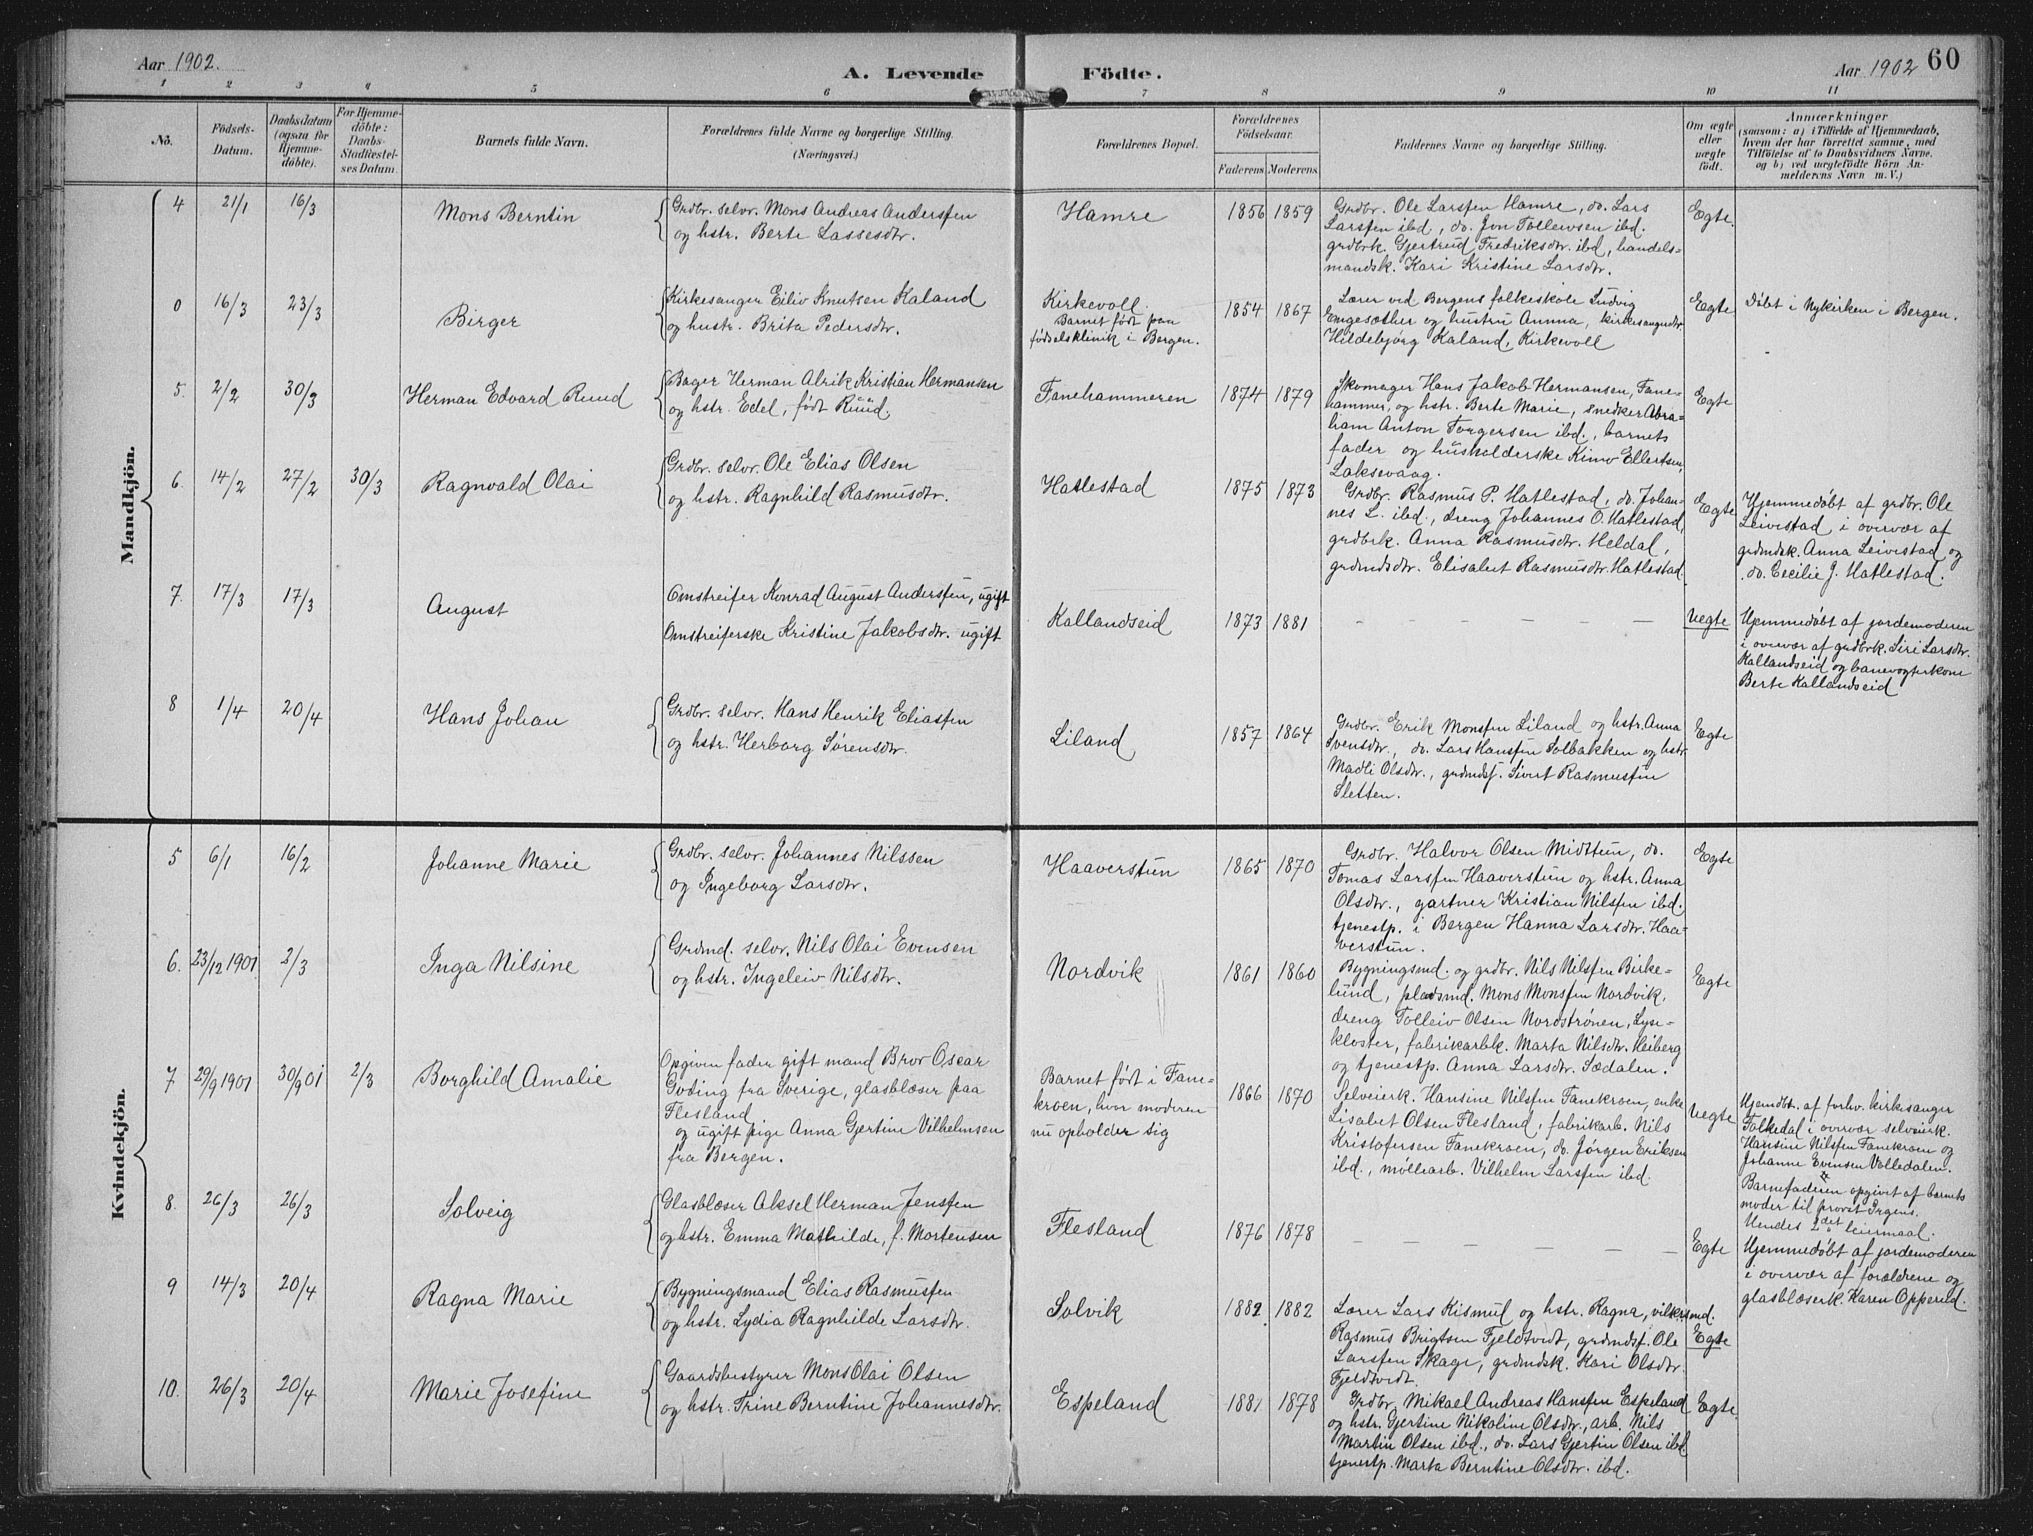 Aar 1902.
A. Levende Födte.
Aar 1902
60
1 2 3 4 5 6 7 8 9 10 11
No.
Födsels-
Datum.
Daabsdatum
(ogsaa for
Hjemme-
döbte).
For Hjemme-
döbte:
Daabs-
Stadfæstel-
ses Datum.
Barnets fulde Navn.
Forældrenes fulde Navne og borgerlige Stilling.
(Næringsvei.)
Forældrenes Bopæl.
Forældrenes
Födselsaar.
Faderens. Moderens.
Faddernes Navne og borgerlige Stilling.
Om ægte
eller
uægte
födt.
Anmærkninger
(saasom: a) i Tilfælde af Hjemmedaab,
hvem der har forrettet samme, med
Tilföielse af to Daabsvidners Navne,
og b) ved uægtefödte Börn An-
melderens Navn m. V.)
Mandkjön.
4 21/1 16/3 Mons Berntin
Grdbr. selvr. Mons Andreas Anderssen
og hstr. Berte Lassesdtr.
Hamre 1856 1859
Grdbr. Ole Larssen Hamre, do. Lars
Larssen ibd, do. Jon Tolleivsen ibd.
grdbrk. Gjertrud Fredriksdtr. ibd, handels-
mandsk. Kari Kristine Larsdtr.
Egte
0 16/3 23/3 Birger
Kirkesanger Eiliv Knutsen Kaland
og hustr. Brita Pedersdtr.
Kirkevoll.
Barnet født paa
fødselsklinik i Bergen.
1854 1867
Lærer ved Bergens folkeskole Ludvig
Engesæther og hustru Anna, kirkesangerdtr
Hildebjørg Kaland, Kirkevoll
Egte
Døbt i Nykirken i Bergen.
5. 2/2 30/3 Herman Edvard Ruud
Bager Herman Alrik Kristian Hermansen
og hstr. Edel, født Ruud.
Fanehammeren 1874 1879
Skomager Hans Jakob Hermansen, Fane-
hammer, og hstr. Berte Marie, snedker Abra-
ham Anton Torgersen ibd., barnets
fader og husholderske Kimo Ellertsen,
Laksevaag.
Egte
6. 14/2 27/2 30/3 Ragnvald Olai
Grdbr. selvr. Ole Elias Olsen
og hstr. Ragnhild Rasmusdtr.
Hatlestad 1875 1873
Grdbr. Rasmus P. Hatlestad, do. Johan-
nes L. ibd., dreng Johannes O. Hatlestad,
grdbrk. Anna Rasmusdtr. Heldal,
grdmdsdtr. Elisabet Rasmusdtr. Hatlestad
Egte
Hjemmedøbt af grdbr. Ole
Leivestad, i overvær af
grdmdsk. Anna Leivestad og
do. Cecilie J. Hatlestad.
7. 17/3 17/3 August
Omstreifer Konrad August Anderssen, ugift
Omstreiferske Kristine Jakobsdtr. ugift
Kallandseid 1873 1881
– – – – – –
Uegte
Hjemmedøbt af jordemoderen
i overvær af grdbrk. Siri Larsdtr.
Kallandseid og banevogterkone
Berte Kallandseid
8 1/4 20/4 Hans Johan
Grdbr. selvr. Hans Henrik Eliassen
og hstr. Herborg Sørensdtr.
Liland 1857 1864
Grdbr. Erik Monssen Liland og hstr. Anna
Svensdtr., do. Lars Hanssen Solbakken og hstr.
Madli Olsdtr., grdmdss. Sivert Rasmussen
Sletten.
Egte
Kvindekjön.
5 6/1 16/2 Johanne Marie
Grdbr. selvr. Johannes Nilssen
og Ingeborg Larsdtr.
Haaverstun 1865 1870
Grdbr. Halvor Olsen Midttun, do.
Tomas Larssen Haaverstun og hstr. Anna
Olsdtr., gartner Kristian Nilssen ibd.,
tjenestp. i Bergen Hanna Larsdtr. Haa-
verstun.
Egte
6. 23/12 1901 2/3 Inga Nilsine
Grdmd. selvr. Nils Olai Evensen
og hstr. Ingeleiv Nilsdtr.
Nordvik 1861 1860
Bygningsmd. og grdbr. Nils Nilssen Birke-
lund, pladsmd. Mons Monssen Nordvik,
dreng Tolleiv Olsen Nordstrønen, Lyse-
kloster, fabrikarbk. Marta Nilsdtr. Heiberg
og tjenestp. Anna Larsdtr. Sædalen.
Egte
7 29/9 1901 30/9 01 2/3 Borghild Amalie
Opgiven fader gift mand Bror Oscar
Goding fra Sverige, glasblæser paa
Flesland
og ugift pige Anna Gjertine Vilhelmsen
fra Bergen.
Barnet født i Fane-
kroen, hvor moderen
nu opholder sig
1866 1870
Selveierk. Hansine Nilssen Fanekroen, enke
Lisabet Olsen Flesland, fabrikarb. Nils
Kristofersen Fanekroen, do. Jørgen Eriksen
ibd., møllearb. Vilhelm Larssen ibd.
Uegte
Hjemdøbt. af forhv. kirkesanger
Folkedal i overvær selveierk.
Hansine Nilssen Fanekroen og
Johanne Evensen Volledalen.
Barnefaderen opgivet af barnets
moder til provst Irgens.
Hendes 2det leiermaal.
8. 26/3 26/3 Solveig
Glasblæser Aksel Herman Jenssen
og hstr. Emma Mathilde, f. Mortensen
Flesland 1876 1878
– – – – – –
Egte
Hjemmedøbt af jordemoderen
i overvær af forældrene og
glasblæserk. Karen Opperud.
9 14/3 20/4 Ragna Marie
Bygningsmand Elias Rasmussen
og hstr. Lydia Ragnhilde Larsdtr.
Solvik 1882 1882
Lærer Lars Kismul og hstr. Ragna,
Rasmus Brigtsen Fjeldtvedt, grdmdss. Ole
Larssen Skage, grdmdsk. Kari Olsdtr.
Fjeldtvedt.
Egte
10. 26/3 20/4 Marie Josefine
Gaardsbestyrer Mons Olai Olsen
og hstr. Trine Berntine Johannesdtr.
Espeland 1881 1878
Grdbr. Mikael Andreas Hanssen Espeland
og hstr. Gjertine Nikoline Olsdtr., arb. Nils
Martin Olsen ibd., do. Lars Gjertin Olsen ibd.
tjenestp. Marta Berntine Olsdtr. ibd.
Egte